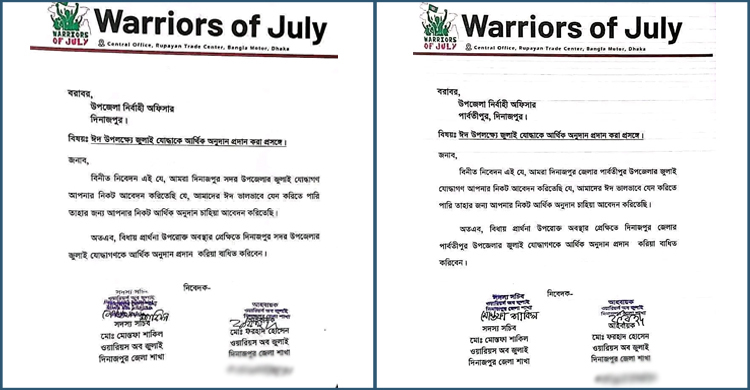 WARRIORS
OF JULY
Warriors of July
Central Office, Rupayan Trade Center, Bangla Motor, Dhaka
বরাবর,
উপজেলা নির্বাহী অফিসার
দিনাজপুর।
বিষয়ঃ ঈদ উপলক্ষ্যে জুলাই যোদ্ধাকে আর্থিক অনুদান প্রদান করা প্রসঙ্গে।
জনাব,
বিনীত নিবেদন এই যে, আমরা দিনাজপুর সদর উপজেলার জুলাই যোদ্ধাগণ
আপনার নিকট আবেদন করিতেছি যে, আমাদের ঈদ ভালভাবে যেন করিতে পারি
তাহার জন্য আপনার নিকট আর্থিক অনুদান চাহিয়া আবেদন করিতেছি।
অতএব, বিধায় প্রার্থনা উপরোক্ত অবস্থার প্রেক্ষিতে দিনাজপুর সদর উপজেলার
জুলাই যোদ্ধাগণকে আর্থিক অনুদান প্রদান করিয়া বাধিত করিবেন।
নিবেদক-
সদস্য সচিব
ওয়ারিয়র্স অব জুলাই
দিনাজপুর জেলা শাখা
সদস্য সচিব
মোঃ মোস্তফা শাকিল
ওয়ারিয়স অব জুলাই
দিনাজপুর জেলা শাখা
আহবায়ক
ওয়ারিয়র্স অব জুলাই
দিনাজপুর জেলা শাখা
মোঃ ফরহাদ হোসেন
ওয়ারিয়স অব জুলাই
দিনাজপুর জেলা শাখা
WARRIORS
OF JULY
Warriors of July
Central Office, Rupayan Trade Center, Bangla Motor, Dhaka
বরাবর,
উপজেলা নির্বাহী অফিসার
পার্বতীপুর, দিনাজপুর।
বিষয়ঃ ঈদ উপলক্ষ্যে জুলাই যোদ্ধাকে আর্থিক অনুদান প্রদান করা প্রসঙ্গে।
জনাব,
বিনীত নিবেদন এই যে, আমরা দিনাজপুর জেলার পার্বতীপুর উপজেলার জুলাই
যোদ্ধাগণ আপনার নিকট আবেদন করিতেছি যে, আমাদের ঈদ ভালভাবে যেন করিতে পারি
তাহার জন্য আপনার নিকট আর্থিক অনুদান চাহিয়া আবেদন করিতেছি।
অতএব, বিধায় প্রার্থনা উপরোক্ত অবস্থার প্রেক্ষিতে দিনাজপুর জেলার
পার্বতীপুর উপজেলার জুলাই যোদ্ধাগণকে আর্থিক অনুদান প্রদান করিয়া বাধিত
করিবেন।
নিবেদক-
সদস্য সচিব
ওয়ারিয়র্স অব জুলাই
দিনাজপুর জেলা শাখা
মোস্তফা শাকিল
সদস্য সচিব
মোঃ মোস্তফা শাকিল
ওয়ারিয়স অব জুলাই
দিনাজপুর জেলা শাখা
আহবায়ক
ওয়ারিয়র্স অব জুলাই
দিনাজপুর জেলা শাখা
আহবায়ক
মোঃ ফরহাদ হোসেন
ওয়ারিয়স অব জুলাই
দিনাজপুর জেলা শাখা